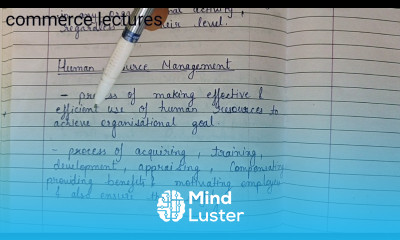 commerce lectures
activity,
regardless their level.
Human Resource Management
- process of making effective &
efficient use of human resources to
achieve organisational goal.
- process of acquiring, training,
development, appraising, compensating
providing benefits & motivating employees
& also ensure
Mind
Luster